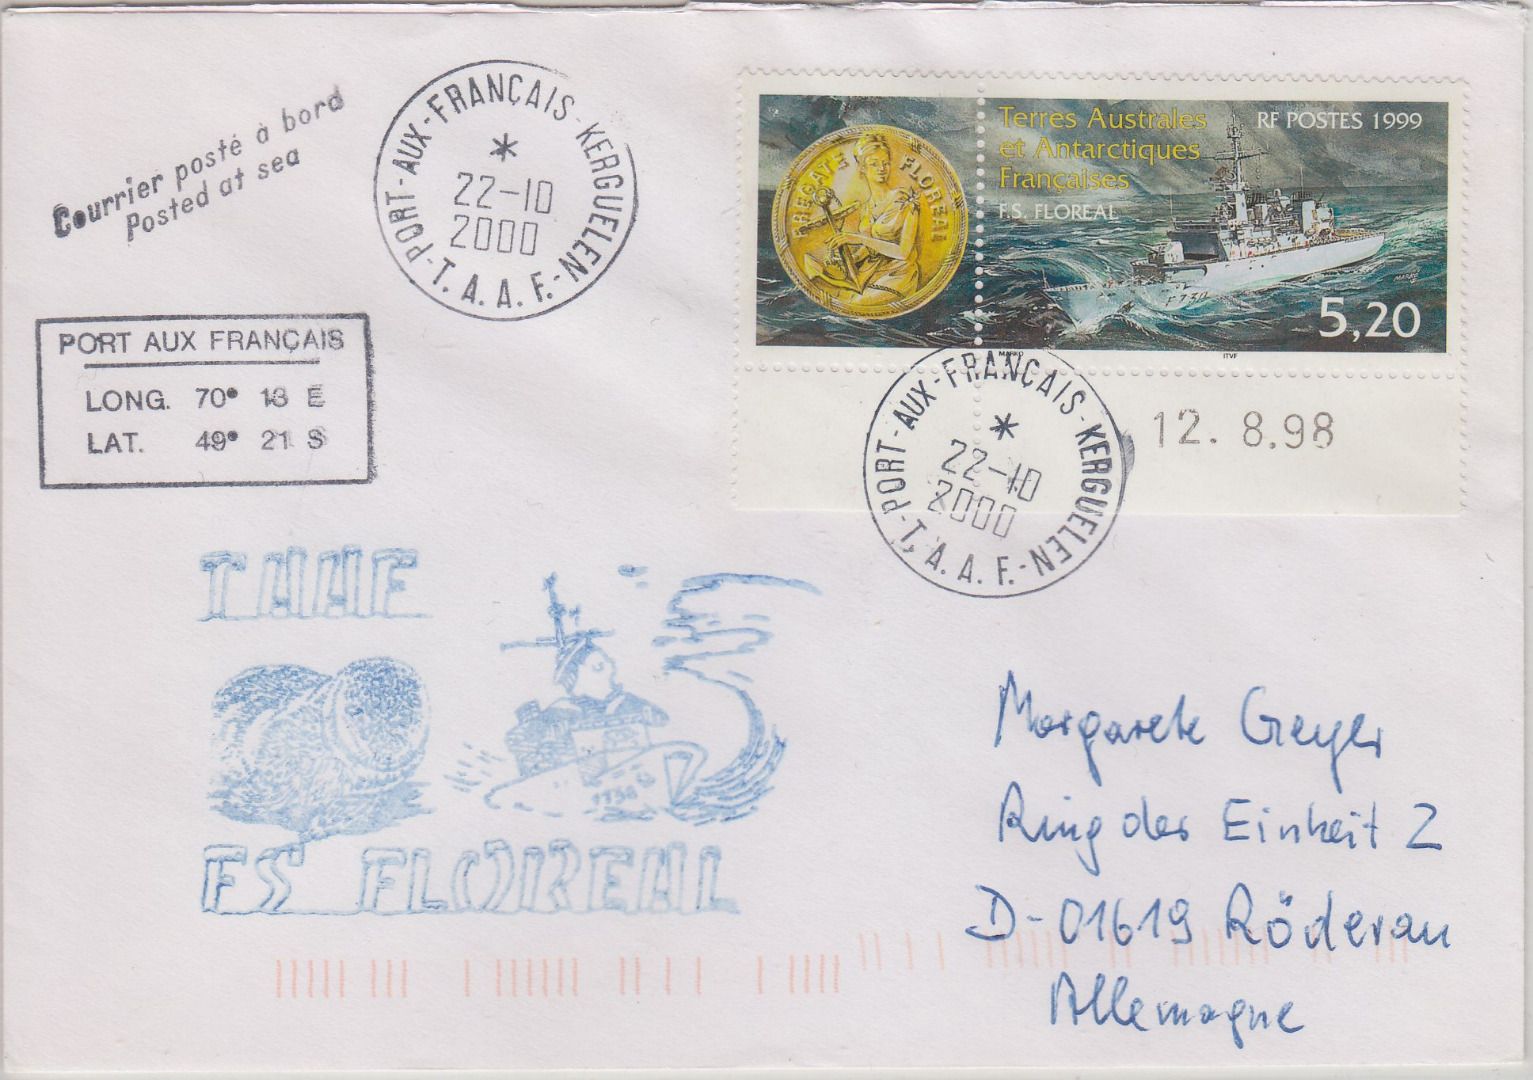 Courrier posté à bord
Posted at sea
PORT-AUX-FRANÇAIS-KERGUELEN-
T.A.A.F.-
22-10
2000
PORT AUX FRANÇAIS
LONG. 70° 13 E
LAT. 49° 21 S
FREGATE FLOREAL
Terres Australes
et Antarctiques
Françaises
F.S. FLOREAL
RF POSTES 1999
5,20
MARKO
ITVF
PORT-AUX-FRANÇAIS-KERGUELEN-
T.A.A.F.-
22-10
2000
12. 8.98
TAAF
FS FLOREAL
Margarete Geyer
Ring der Einheit 2
D-01619 Röderau
Allemagne